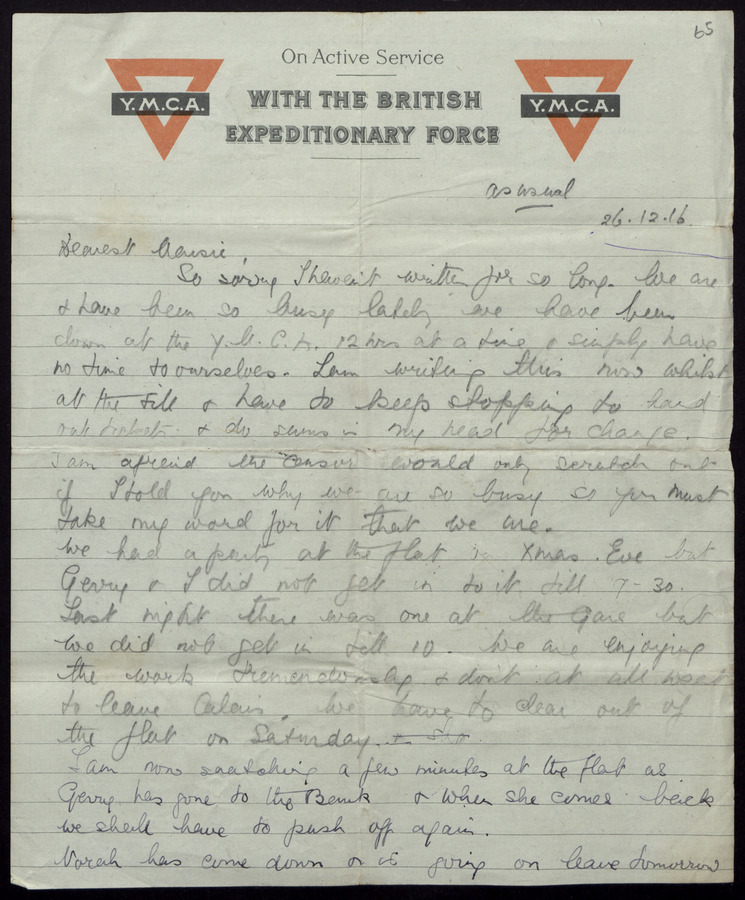 65
On Active Service
Y.M.C.A.
WITH THE BRITISH
EXPEDITIONARY FORCE
Y.M.C.A.
as usual
26.12.16.
Dearest Mousie,
So sorry I haven't written for so long. We are
& have been so busy lately we have been
down at the Y.M.C.A. 12 hrs at a time & simply have
no time to ourselves. I am writing this now whilst
at the till & have to keep stopping to hand
out tickets & do sums in my head for change.
I am afraid the "censor" would only scratch out
if I told you why we are so busy so you must
take my word for it that we are.
We had a party at the flat on Xmas. Eve but
Gerry & I did not get in to it till 7-30.
Last night there was one at the Gare but
we did not get in till 10. We are enjoying
the work tremendously & don't at all want
to leave Calais. We have to clear out of
the flat on Saturday.
I am now snatching a few minutes at the flat as
Gerry has gone to the Bank & when she comes back
we shall have to push off again.
Norah has come down & is going on leave tomorrow